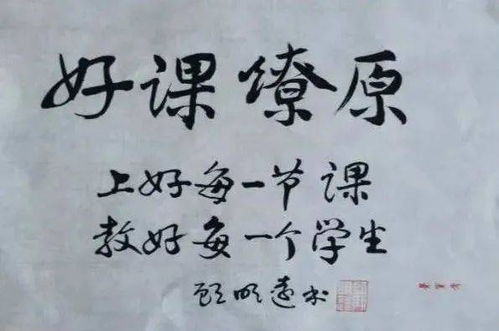 好课燎原
上好每一节课
教好每一个学生
顾明远书